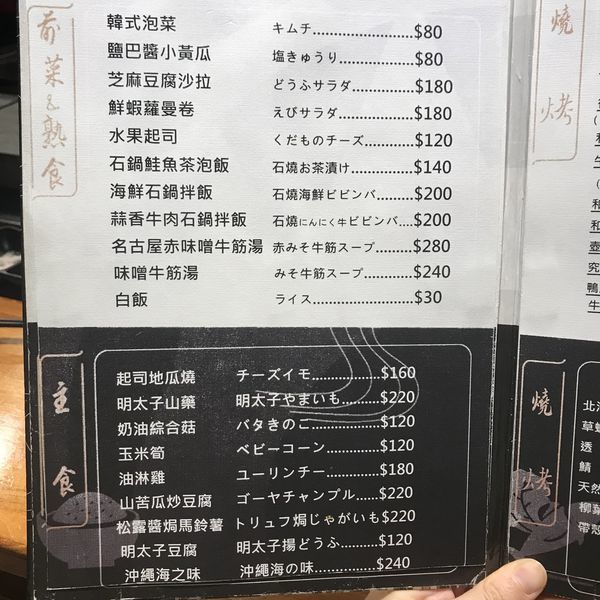 前菜&熟食
韓式泡菜 キムチ...................$80
鹽巴醬小黃瓜 塩きゅうり..............$80
芝麻豆腐沙拉 どうふサラダ...........$180
鮮蝦蘿蔓卷 えびサラダ..............$180
水果起司 くだものチーズ.........$120
石鍋鮭魚茶泡飯 石燒お茶漬け............$140
海鮮石鍋拌飯 石燒海鮮ビビンバ......$200
蒜香牛肉石鍋拌飯 石燒にんにく牛ビビンバ...$200
名古屋赤味噌牛筋湯 赤みそ牛筋スープ.......$280
味噌牛筋湯 みそ牛筋スープ..........$240
白飯 ライス....................$30
主食
起司地瓜燒 チーズイモ...............$160
明太子山藥 明太子やまいも.........$220
奶油綜合菇 バタきのこ..............$120
玉米筍 ベビーコーン............$120
油淋雞 ユーリンチー............$180
山苦瓜炒豆腐 ゴーヤチャンプル......$220
松露醬焗馬鈴薯 トリュフ焗じゃがいも$220
明太子豆腐 明太子揚どうふ.........$120
沖繩海之味 沖縄海の味.............$240
燒烤
燒烤
北海
透
鯖
天然
柳葉
帶殼